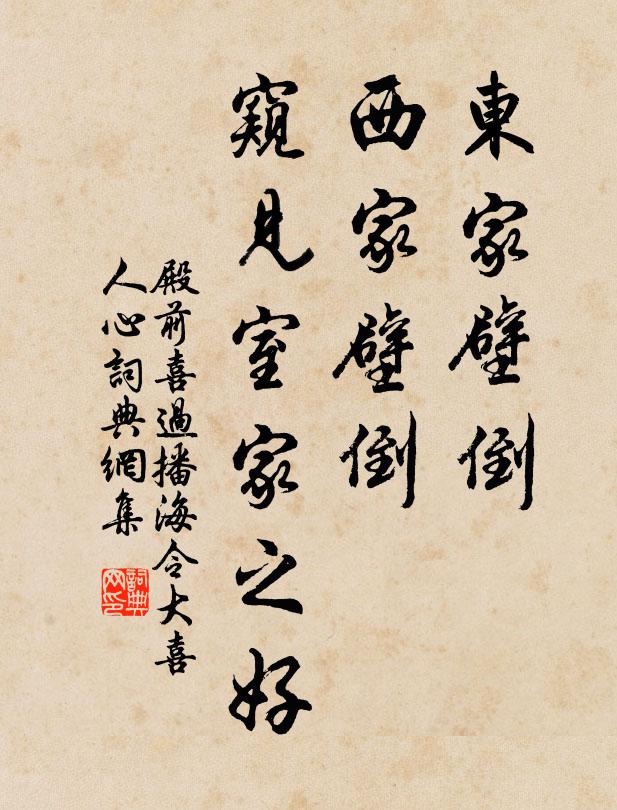 東家壁倒
西家壁倒
窺見室家之好
殿前喜過播海令大喜
人心詞典網集
詞典
网印